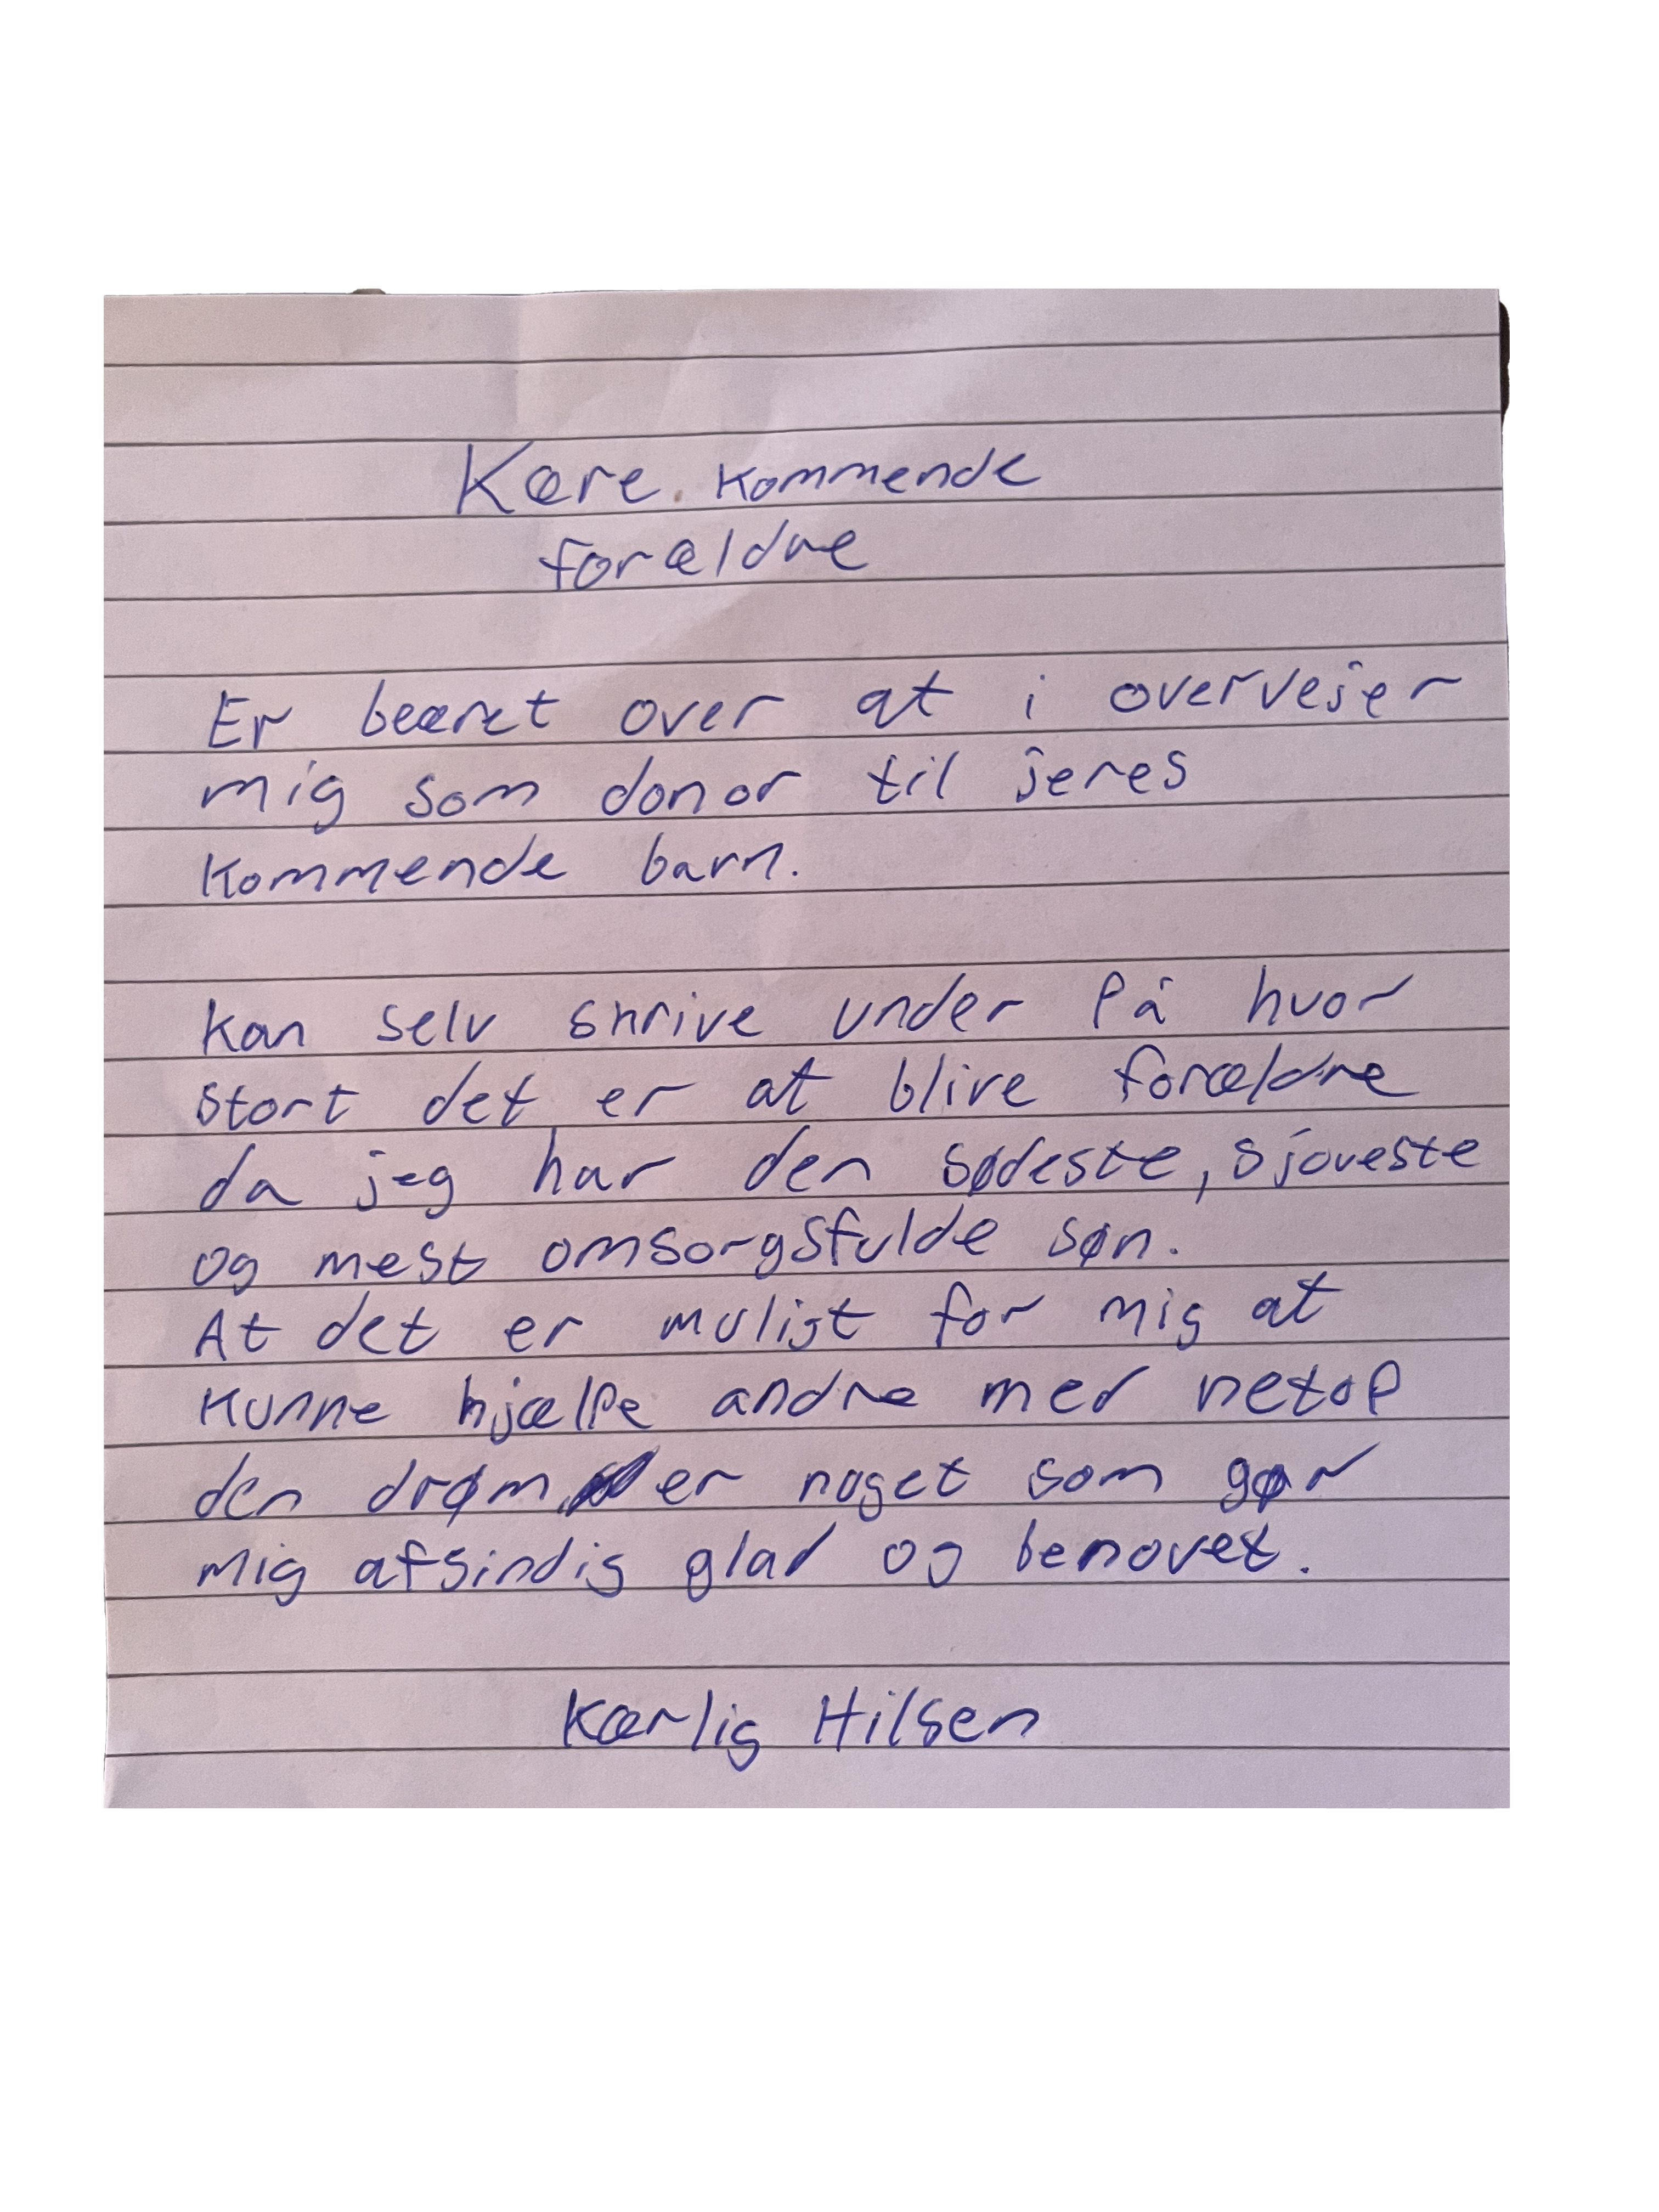 Kære kommende
forældre
Er beæret over at i overvejer
mig som donor til jeres
kommende barn.
Kan selv skrive under på hvor
stort det er at blive forældre
da jeg har den sødeste, sjoveste
og mest omsorgsfulde søn.
At det er muligt for mig at
kunne hjælpe andre med netop
den drøm er noget som gør
mig afsindig glad og benovet.
Kærlig Hilsen